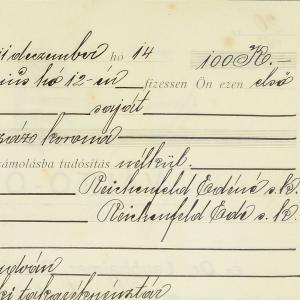 11 deczember hó 14 100 K.-
nius hó 12-én fizessen Ön ezen első
saját
száz korona
számolásba tudósítás nélkül.
Reichenfeld Edéné s. k.
Reichenfeld Ede s. k.
takarékpénztár